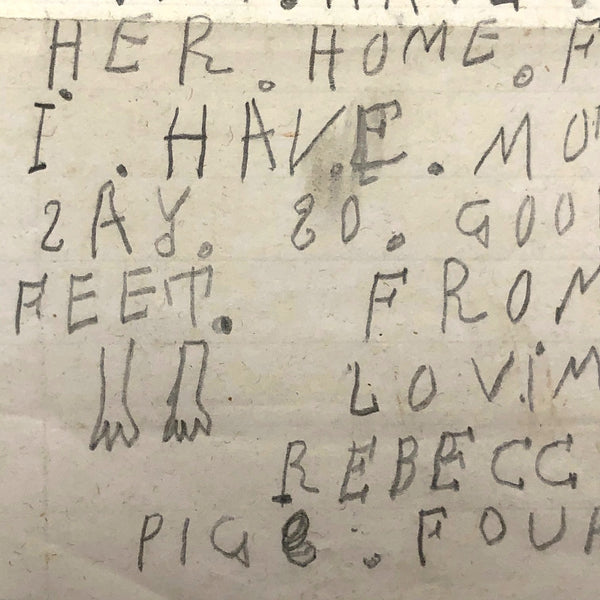 HER. HOME. F
I. HAV.E. MO
SAY. SO. GOO
FEET. FROM
LOVIN
REBECC
PIGS. FOUR